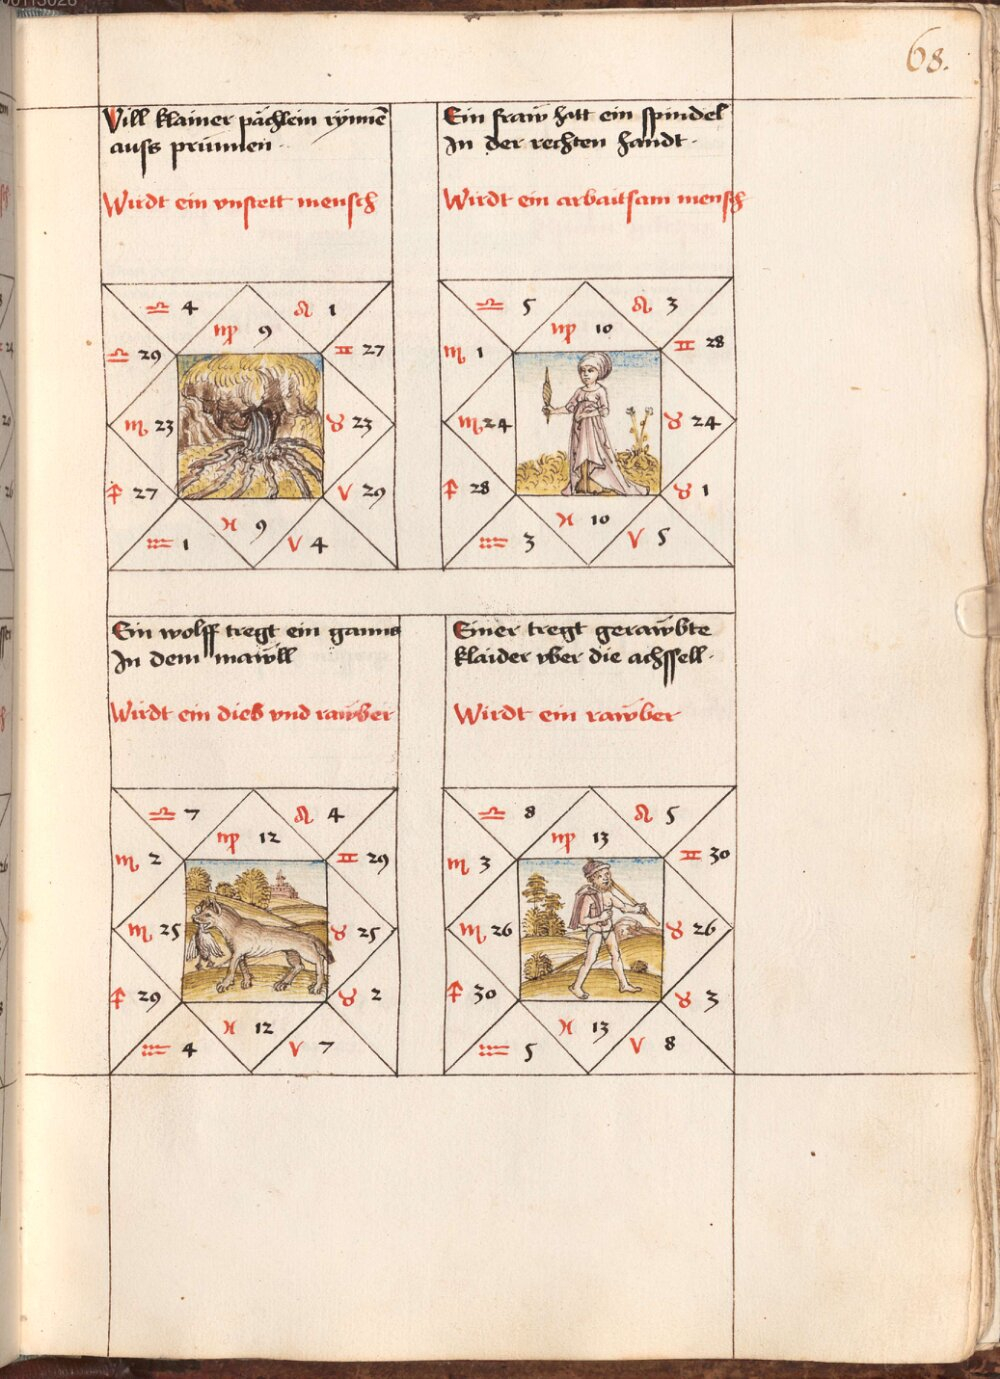 68.
Vill klainer pächlein rÿnnē
auss prunnen
Wirdt ein vnstett mensch
♎ 4
♌ 1
♍ 9
♎ 29
♊ 27
♏ 23
♉ 23
♐ 27
♈ 29
♓ 9
♒ 1
♈ 4
Ein fraw hatt ein spindel
In der rechten handt
Wirdt ein arbaitsam mensch
♎ 5
♌ 3
♍ 10
♏ 1
♊ 28
♏ 24
♉ 24
♐ 28
♉ 1
♓ 10
♒ 3
♈ 5
Ein wolff tregt ein ganns
In dem mawll
Wirdt ein dieb vnd rawber
♎ 7
♌ 4
♍ 12
♏ 2
♊ 29
♏ 25
♉ 25
♐ 29
♉ 2
♓ 12
♒ 4
♈ 7
Einer tregt gerawbte
klaider vber die achssell
Wirdt ein rawber
♎ 8
♌ 5
♍ 13
♏ 3
♊ 30
♏ 26
♉ 26
♐ 30
♉ 3
♓ 13
♒ 5
♈ 8